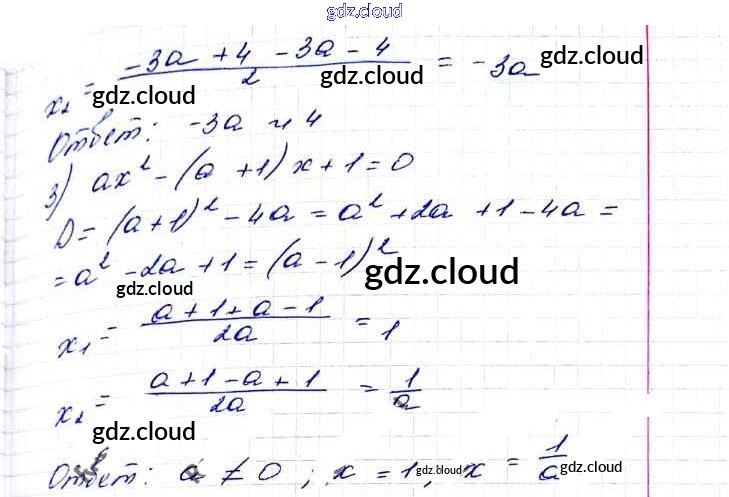 gdz.cloud
x₂ = (-3a + 4 - 3a - 4)/2 = -3a gdz.cloud
gdz.cloud gdz.cloud
Ответ: -3a и 4
3) ax² - (a + 1)x + 1 = 0
D = (a+1)² - 4a = a² + 2a + 1 - 4a =
= a² - 2a + 1 = (a - 1)²
gdz.cloud gdz.cloud
x₁ = (a + 1 + a - 1)/2a = 1
gdz.cloud
x₂ = (a + 1 - a + 1)/2a = 1/a
gdz.cloud
Ответ: a ≠ 0; x = 1, gdz.cloud x = 1/a gdz.cloud
gdz.cloud